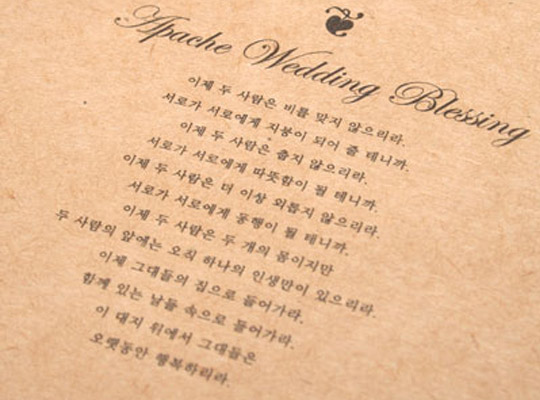 Apache Wedding Blessing
이제 두 사람은 비를 맞지 않으리라.
서로가 서로에게 지붕이 되어 줄 테니까.
이제 두 사람은 춥지 않으리라.
서로가 서로에게 따뜻함이 될 테니까.
이제 두 사람은 더 이상 외롭지 않으리라.
서로가 서로에게 동행이 될 테니까.
이제 두 사람은 두 개의 몸이지만
두 사람의 앞에는 오직 하나의 인생만이 있으리라.
이제 그대들의 집으로 들어가라.
함께 있는 날들 속으로 들어가라.
이 대지 위에서 그대들은
오랫동안 행복하리라.